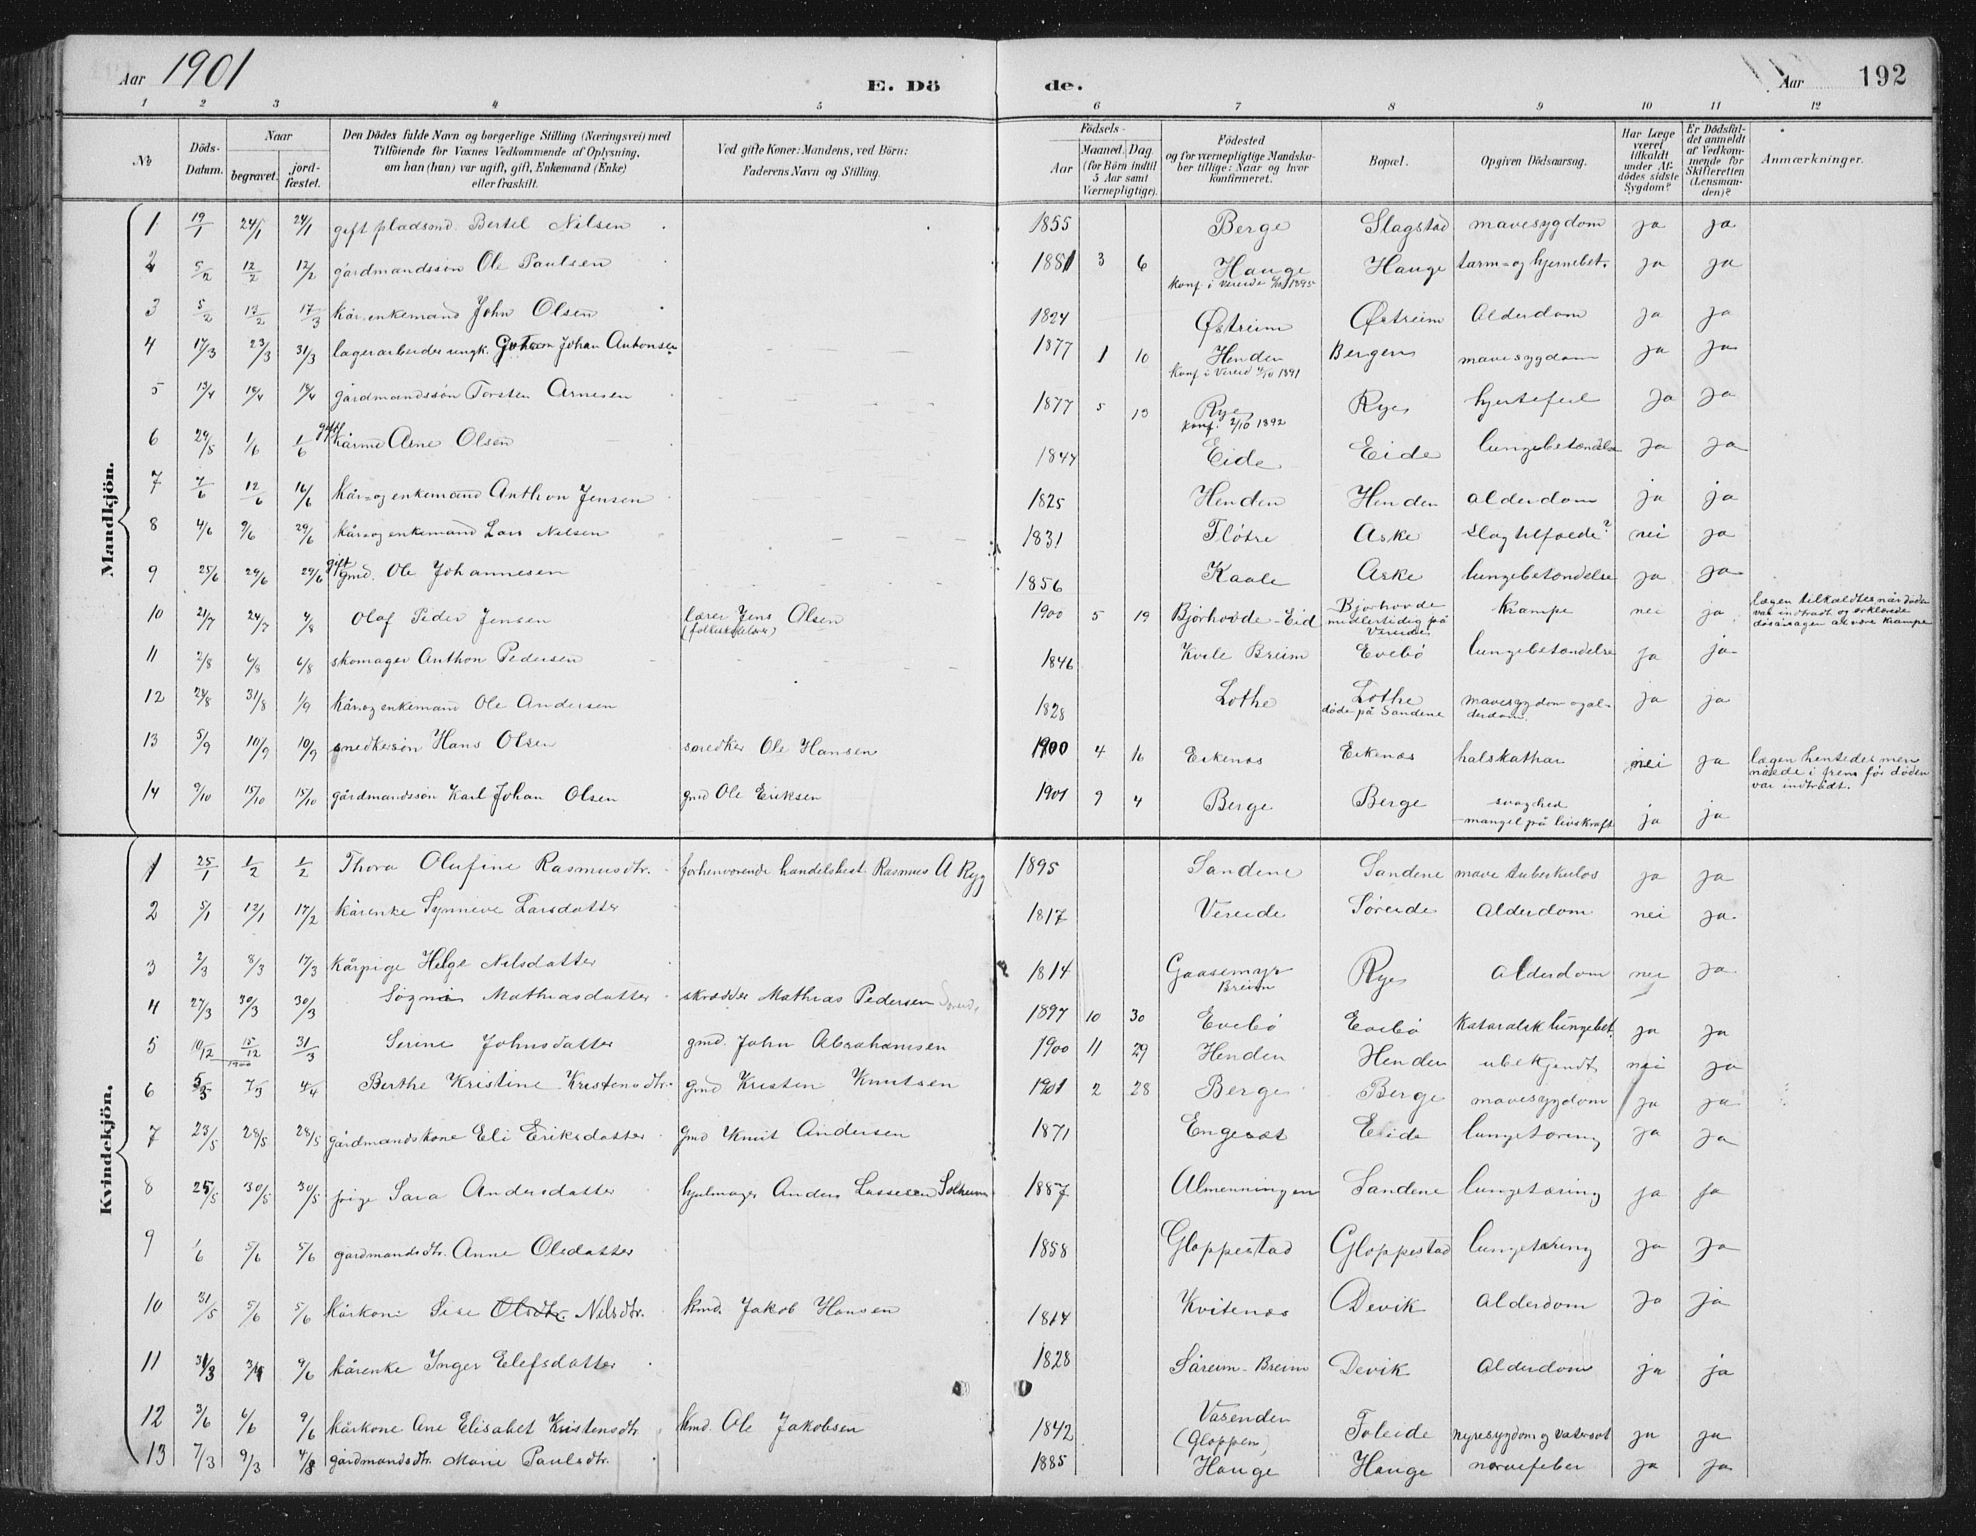 Aar 1901 E. Dö de. Aar 192
1 2 3 4 5 6 7 8 9 10 11 12
No
Döds-Datum.
Naar
begravet.
jord-fæstet.
Den Dödes fulde Navn og borgerlige Stilling (Næringsvei) med
Tilföiende for Voxnes Vedkommende af Oplysning,
om han (hun) var ugift, gift, Enkemand (Enke)
eller fraskilt.
Ved gifte Koner: Mandens, ved Börn:
Faderens Navn og Stilling.
Födsels-
Aar
Maaned. Dag.
(for Börn indtil
5 Aar samt
Værnepligtige).
Födested
og for værnepligtige Mandska-
ber tillige: Naar og hvor
konfirmeret.
Bopæl.
Opgiven Dödsaarsag.
Har Læge
været
tilkaldt
under Af-
dödes sidste
Sygdom?
Er Dödsfal-
det anmeldt
af Vedkom-
mende for
Skifteretten
(Lensman-
den)?
Anmærkninger.
Mandkjön.
1 19/1 24/1 24/1 gift pladsmd. Bertel Nilsen 1855 Berge Slagstad mavesygdom ja ja
2 5/2 12/2 12/2 gårdmandssön Ole Paulsen 1881 3 6 Hauge Hauge tarm- og hjernebet. ja ja
konf. i Vereide 1895
3 5/2 17/2 17/3 kår, enkemand John Olsen 1824 Østreim Østreim Alderdom ja ja
4 17/3 23/3 31/3 lagerarbeider ungk. Johan Antonsen 1877 1 10 Henden Bergen mavesygdom ja ja
konf. i Vereid 1891
5 13/4 18/4 18/4 gårdmandssön Torsten Arnesen 1877 5 13 Rye Rye hjertefeil ja ja
konf. 2/10 1892
6 24/5 1/6 1/6 gift kårmd Arne Olsen 1847 Eide Eide lungebetændelse ja ja
7 7/6 12/6 16/6 kår- og enkemand Anthon Jensen 1825 Henden Henden alderdom ja ja
8 4/6 9/6 29/6 kår- og enkemand Lars Nilsen 1831 Flötre Aske slagtilfælde? nei ja
9 25/6 29/6 29/6 gift gmd. Ole Johannesen 1856 Kaale Aske lungebetændelse ja ja
10 21/7 24/7 4/8 Olaf Peder Jensen lærer Jens Olsen 1900 5 19 Bjørhovde-Eid Bjørhovde krampe nei ja lægen tilkaldtes når döden
midlertidig på Vereide var indtrådt og erklærede
dösårsagen at være krampe
11 2/8 6/8 6/8 skomager Anthon Pedersen 1846 Kvile Breim Evebö lungebetændelse ja ja
12 28/8 31/8 1/9 kår- og enkemand Ole Andersen 1828 Lothe Lothe mavesygdom og al-derdom. ja ja
döde på Sandene
13 5/9 10/9 10/9 snedkersön Hans Olsen snedker Ole Hansen 1900 4 16 Eikenæs Eikenæs halskathar nei ja lægen hentedes men
nåede i frem för döden
var indtrådt.
14 9/10 15/10 15/10 gårdmandssön Karl Johan Olsen gmd Ole Eriksen 1901 9 4 Berge Berge svaghed
mangel på livskraft ja ja
Kvindekjön.
1 25/1 1/2 1/2 Thora Olufine Rasmusdtr. forhenværende handelsbest. Rasmus A Ryg 1895 Sandene Sandene mave tuberkulos ja ja
2 5/1 12/1 17/2 kårenke Synneve Larsdatter 1817 Vereide Søreide Alderdom nei ja
3 2/3 8/3 17/3 kårpige Helge Nilsdatter 1814 Gaasemyr Breim Rye Alderdom nei ja
4 27/3 30/3 30/3 Søgni Mathiasdatter skrædder Mathias Pedersen 1897 10 30 Evebö Evebö Kataralsk lungebet. ja ja
5 10/12 15/12 1900 31/3 Serine Johnsdatter gmd. John Abrahamsen 1900 11 29 Henden Henden ubekjendt nei ja
6 5/3 7/3 4/4 Berthe Kristine Kristensdtr. gmd Kristen Knutsen 1901 2 28 Berge Berge mavesygdom ja ja
7 23/5 28/5 28/5 gårdmandskone Eli Eriksdatter gmd Knut Andersen 1871 Engesæt Eide lungetæring ja ja
8 25/5 30/5 30/5 pige Sara Andersdatter hjulmager Anders Lassesen Solheim 1887 Almenningen Sandene lungetæring ja ja
9 1/6 5/6 5/6 gårdmandsdtr. Anne Olsdatter 1858 Gloppestad Gloppestad lungetæring ja ja
10 31/5 5/6 5/6 kårkone Sise Olsdtr. Nilsdtr. kmd. Jakob Hansen 1814 Kvitenæs Devik Alderdom ja ja
11 31/3 3/4 9/6 kårenke Inger Elefsdatter 1828 Såreim-Breim Devik Alderdom ja ja
12 3/6 6/6 9/6 kårkone Ane Elisabet Kristensdtr. kmd. Ole Jakobsen 1842 Vasenden (Gloppen) Foleide nyresygdom og vatersot ja ja
13 7/3 9/3 4/8 gårdmandsdtr. Marie Paulsdtr. 1885 Hauge Hauge nervefeber ja ja